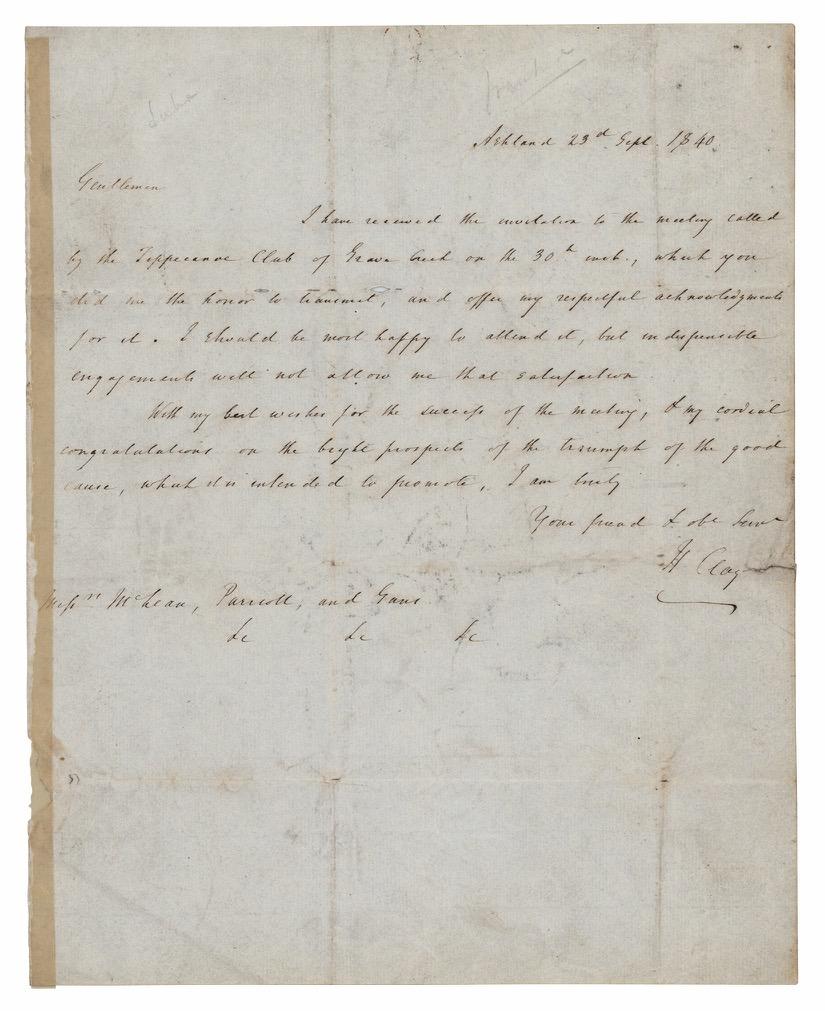 Ashland 23d Sept. 1840
Gentlemen
I have received the invitation to the meeting called
by the Tippecanoe Club of Grave Creek on the 30th inst., which you
did me the honor to transmit, and offer my respectful acknowledgments
for it. I should be most happy to attend it, but indispensible
engagements will not allow me that satisfaction
With my best wishes for the success of the meeting, & my cordial
congratulations on the bright prospects of the triumph of the good
cause, which it is intended to promote, I am truly
Your friend & obt Servt
H Clay
Messrs McLean, Parriott, and Gans
&c &c &c